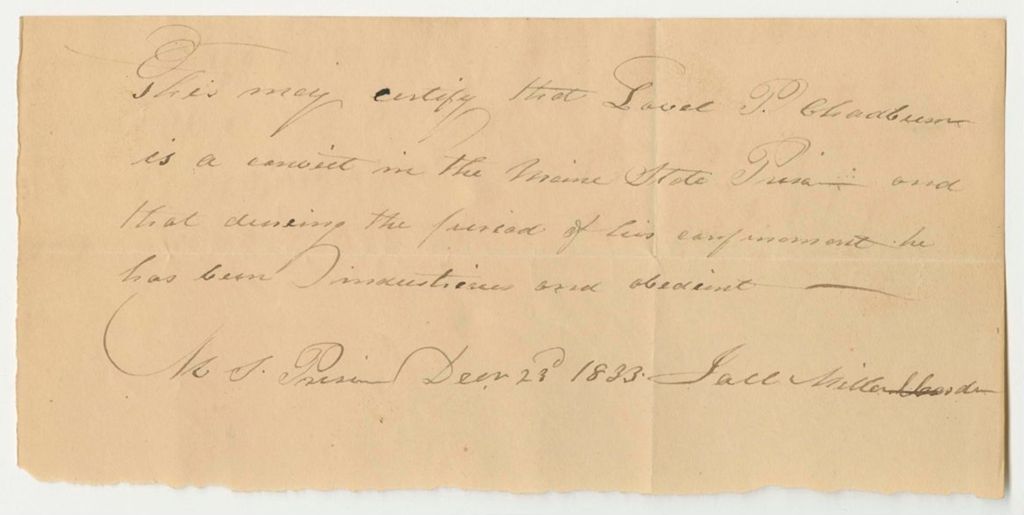 This may certify that Lovel P. Chadburn
is a convict in the Maine State Prison and
that dureing the period of his confinement he
has been industrious and obedient
M S. Prison Decr 23d 1833. Joel Miller Warden